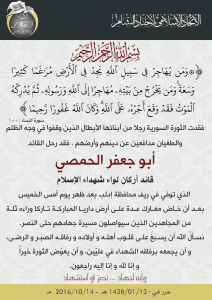 الاتحاد الإسلامي لأجناد الشام
بسم الله الرحمن الرحيم
﴿ وَمَن يُهَاجِرْ فِي سَبِيلِ اللَّهِ يَجِدْ فِي الْأَرْضِ مُرَاغَمًا كَثِيرًا
وَسَعَةً وَمَن يَخْرُجْ مِن بَيْتِهِ مُهَاجِرًا إِلَى اللَّهِ وَرَسُولِهِ ثُمَّ يُدْرِكْهُ
الْمَوْتُ فَقَدْ وَقَعَ أَجْرُهُ عَلَى اللَّهِ وَكَانَ اللَّهُ غَفُورًا رَّحِيمًا ﴾
فقدت الثورة السورية رجلا من أبنائها الأبطال الذين وقفوا في وجه الظلم
والطغيان مدافعين عن دينهم وأرضهم ، فقد رحل القائد
أبو جعفر الحمصي
قائد أركان لواء شهداء الإسلام
الذي توفي في ريف محافظة إدلب بعد ظهر يوم أمس الخميس
بعد أن خاض معارك عدة على أرض داريا المباركة تاركا وراءه ثلة
من المجاهدين الذين سيواصلون مسيرة جهادهم حتى النصر.
نسأل الله أن يسبغ على قلوب أهله و أولاده و رفاقه الصبر و الرضى،
و أن يجمعه برفاقه الشهداء في عليين، و أن يعوض الثورة خيراً
و إنا لله و إنا إليه راجعون.
وإنه لجهاد ... نصر أو استشهاد
حرر في : 1438/01/13هـ - 2016/10/14م